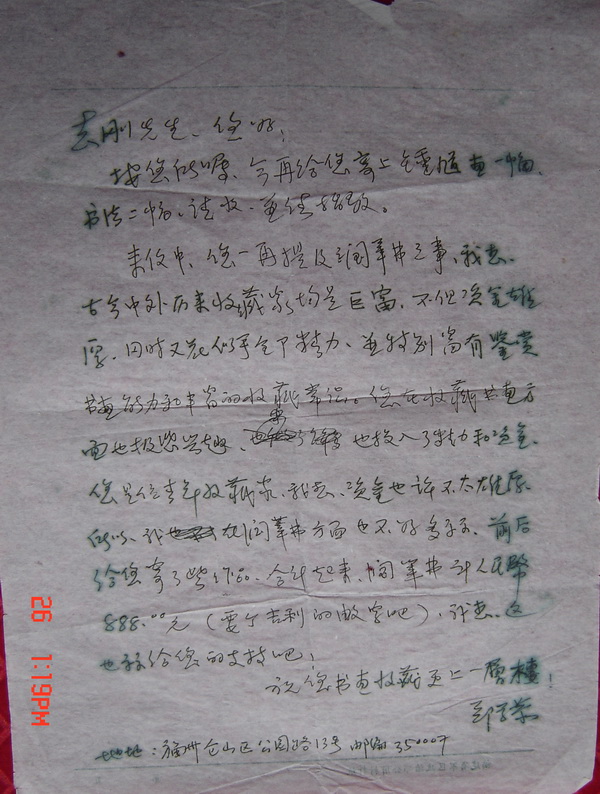 志刚先生、您好！
按您所嘱、今再给您寄上钟馗画一幅、
书法二幅、请收、并请指教。
来信中、您一再提及润笔费之事、我想、
古今中外历来收藏家均是巨富、不但资金雄
厚、同时又花似乎全部精力、并特别富有鉴赏
书画能力和丰富的收藏常识。您在收藏书画方
面也极感兴趣、也投入了精力和资金
您是位青年收藏家、我想、资金也许不太雄厚
所以、我在润笔费方面也不好多要、前后
给您寄了些作品、合计起来、润笔费计人民币
888.00元（要个吉利的数字吧）、我想、这
也算给您的支持吧！
祝您书画收藏更上一层楼！
郑
地址：福州仓山区公园路13号 邮编350007
26 1:19PM